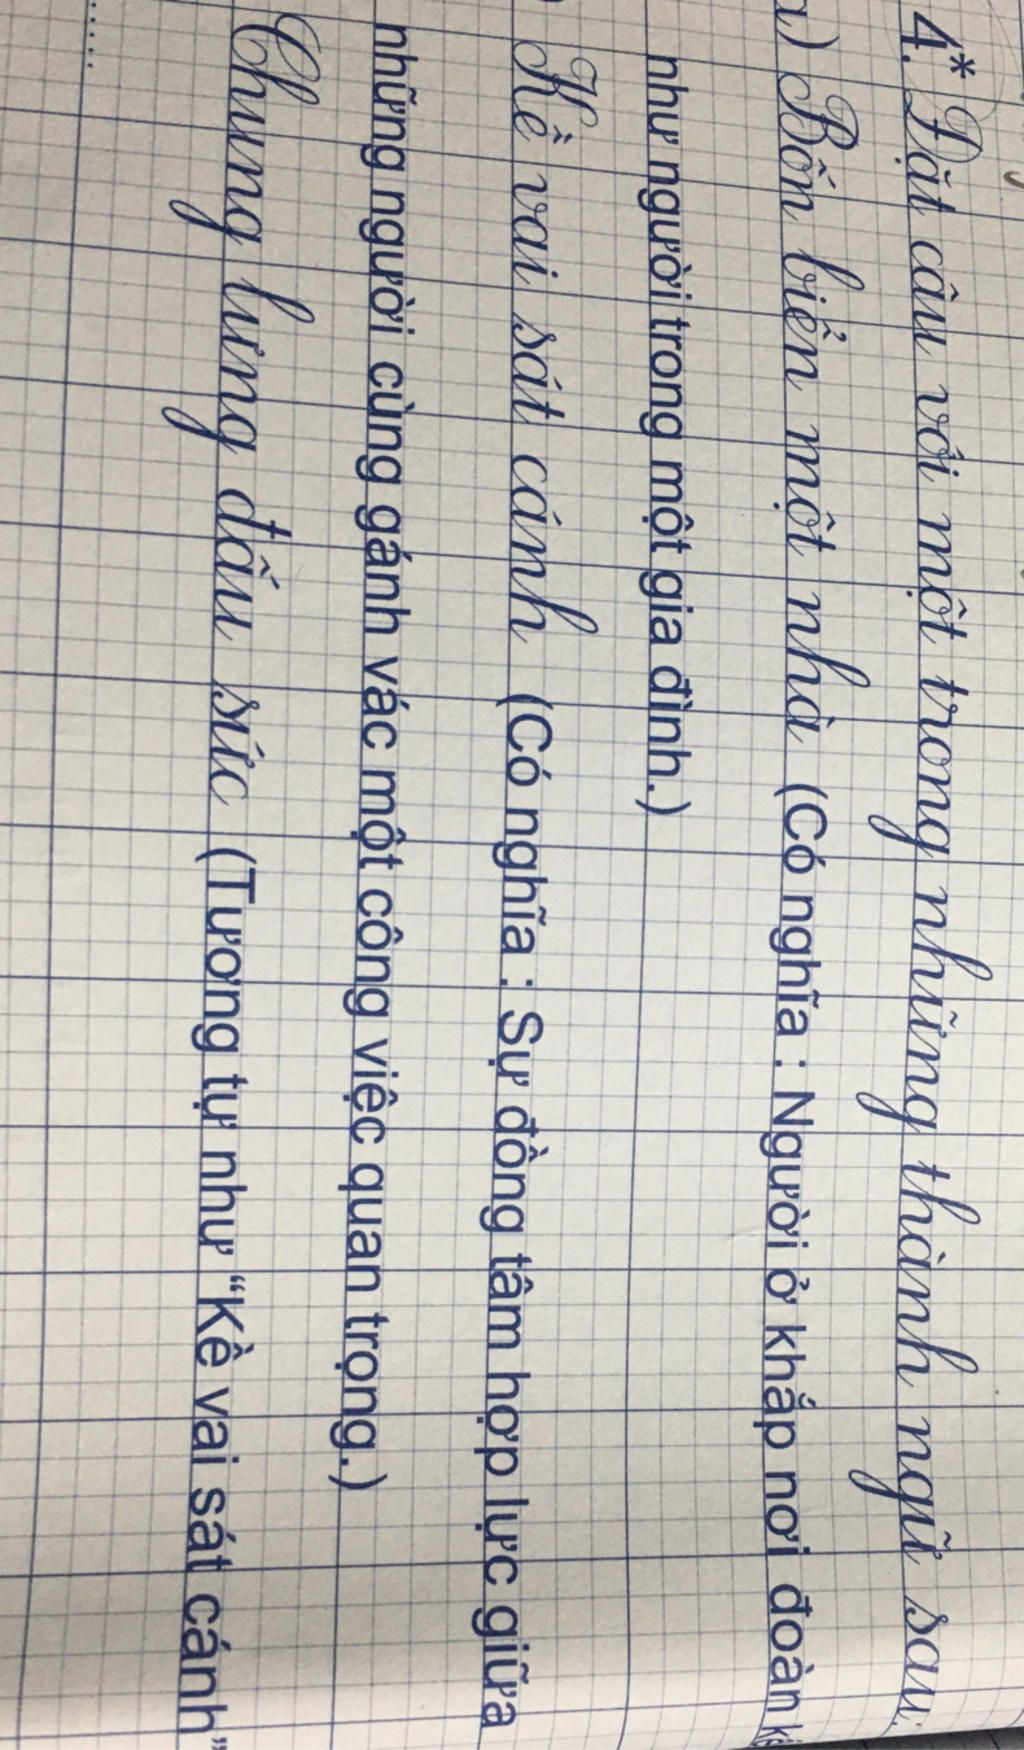 4.* Đặt câu với một trong những thành ngữ sau.
a.) Bốn biển một nhà (Có nghĩa : Người ở khắp nơi đoàn
như người trong một gia đình.)
) Kề vai sát cánh (Có nghĩa : Sự đồng tâm hợp lực giữa
những người cùng gánh vác một công việc quan trọng.)
Chung lưng đấu sức (Tương tự như “Kề vai sát cánh”
.....